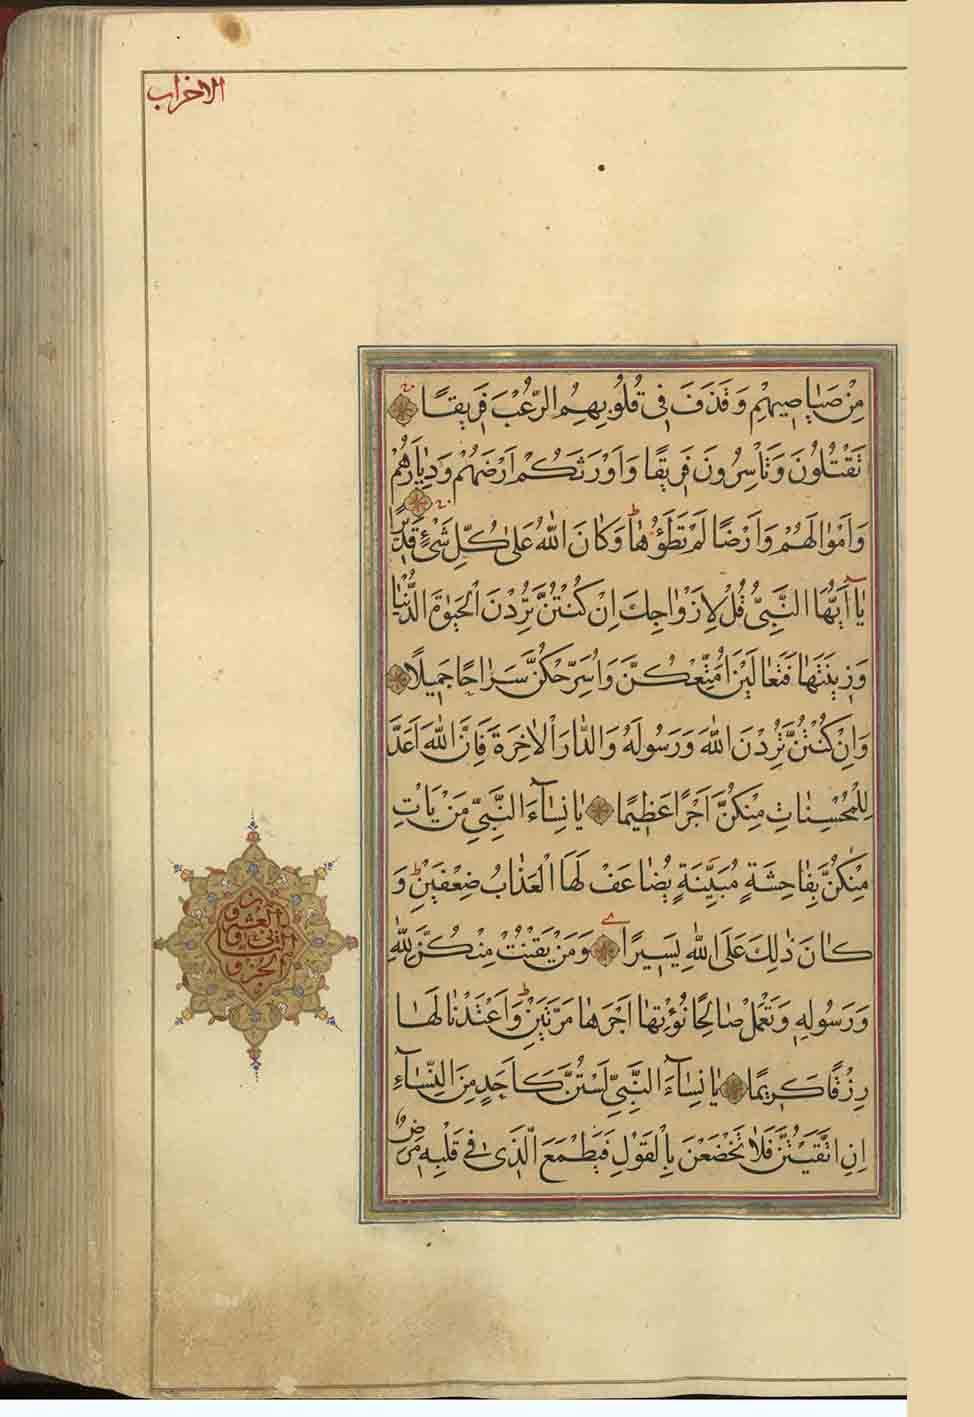 الاحزاب
مِنْ صَيَاصِيهِمْ وَقَذَفَ فِي قُلُوبِهِمُ الرُّعْبَ فَرِيقًا
تَقْتُلُونَ وَتَأْسِرُونَ فَرِيقًا وَاَوْرَثَكُمْ اَرْضَهُمْ وَدِيَارَهُمْ
وَاَمْوَالَهُمْ وَاَرْضًا لَمْ تَطَؤُهَا وَكَانَ اللّٰهُ عَلٰى كُلِّ شَيْءٍ قَدِيرًا
يَآ اَيُّهَا النَّبِيُّ قُلْ لِاَزْوَاجِكَ اِنْ كُنْتُنَّ تُرِدْنَ الْحَيٰوةَ الدُّنْيَا
وَزِينَتَهَا فَتَعَالَيْنَ اُمَتِّعْكُنَّ وَاُسَرِّحْكُنَّ سَرَاحًا جَمِيلًا
وَاِنْ كُنْتُنَّ تُرِدْنَ اللّٰهَ وَرَسُولَهُ وَالدَّارَ الْاٰخِرَةَ فَاِنَّ اللّٰهَ اَعَدَّ
لِلْمُحْسِنَاتِ مِنْكُنَّ اَجْرًا عَظِيمًا يَا نِسَآءَ النَّبِيِّ مَنْ يَاْتِ
مِنْكُنَّ بِفَاحِشَةٍ مُبَيِّنَةٍ يُضَاعَفْ لَهَا الْعَذَابُ ضِعْفَيْنِ وَ
كَانَ ذٰلِكَ عَلَى اللّٰهِ يَسِيرًا وَمَنْ يَقْنُتْ مِنْكُنَّ لِلّٰهِ
وَرَسُولِهِ وَتَعْمَلْ صَالِحًا نُؤْتِهَا اَجْرَهَا مَرَّتَيْنِ وَاَعْتَدْنَا لَهَا
رِزْقًا كَرِيمًا يَا نِسَآءَ النَّبِيِّ لَسْتُنَّ كَاَحَدٍ مِنَ النِّسَآءِ
اِنِ اتَّقَيْتُنَّ فَلَا تَخْضَعْنَ بِالْقَوْلِ فَيَطْمَعَ الَّذِي فِي قَلْبِهِ مَرَضٌ